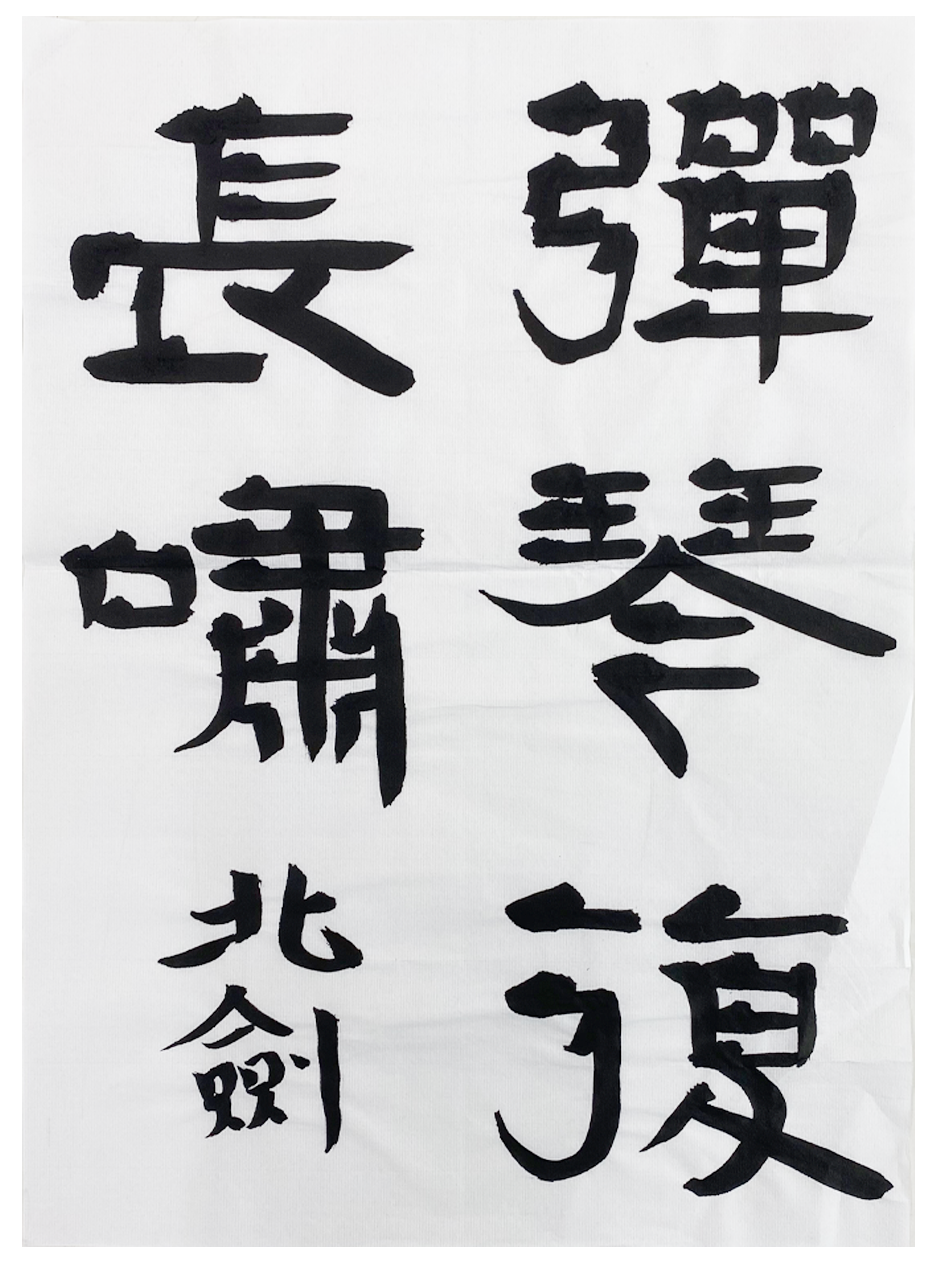 彈琴復
長嘯
北劍